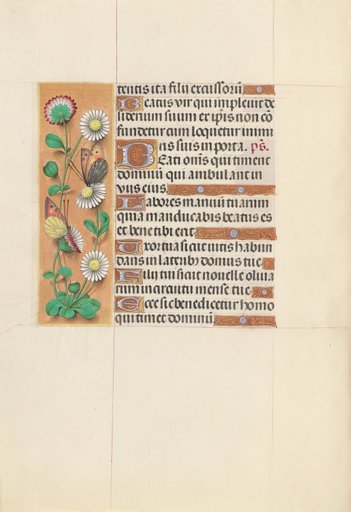 tentis ita filii excussorū
Beatus vir qui impleuit de
siderium suum ex ipsis non cō
fundetur cum loquetur inimi
cis suis in porta. ps.
Beati om̄s qui timent
dominū qui ambulant in
vijs eius
Labores manuū tuarum
quia manducabis beatus es
et bene tibi erit
Uxor tua sicut vitis habun
dans in laterib; domus tue
Filij tui sicut nouelle oliua
rum in circuitu mense tue
Ecce sic benedicetur homo
qui timet dominū